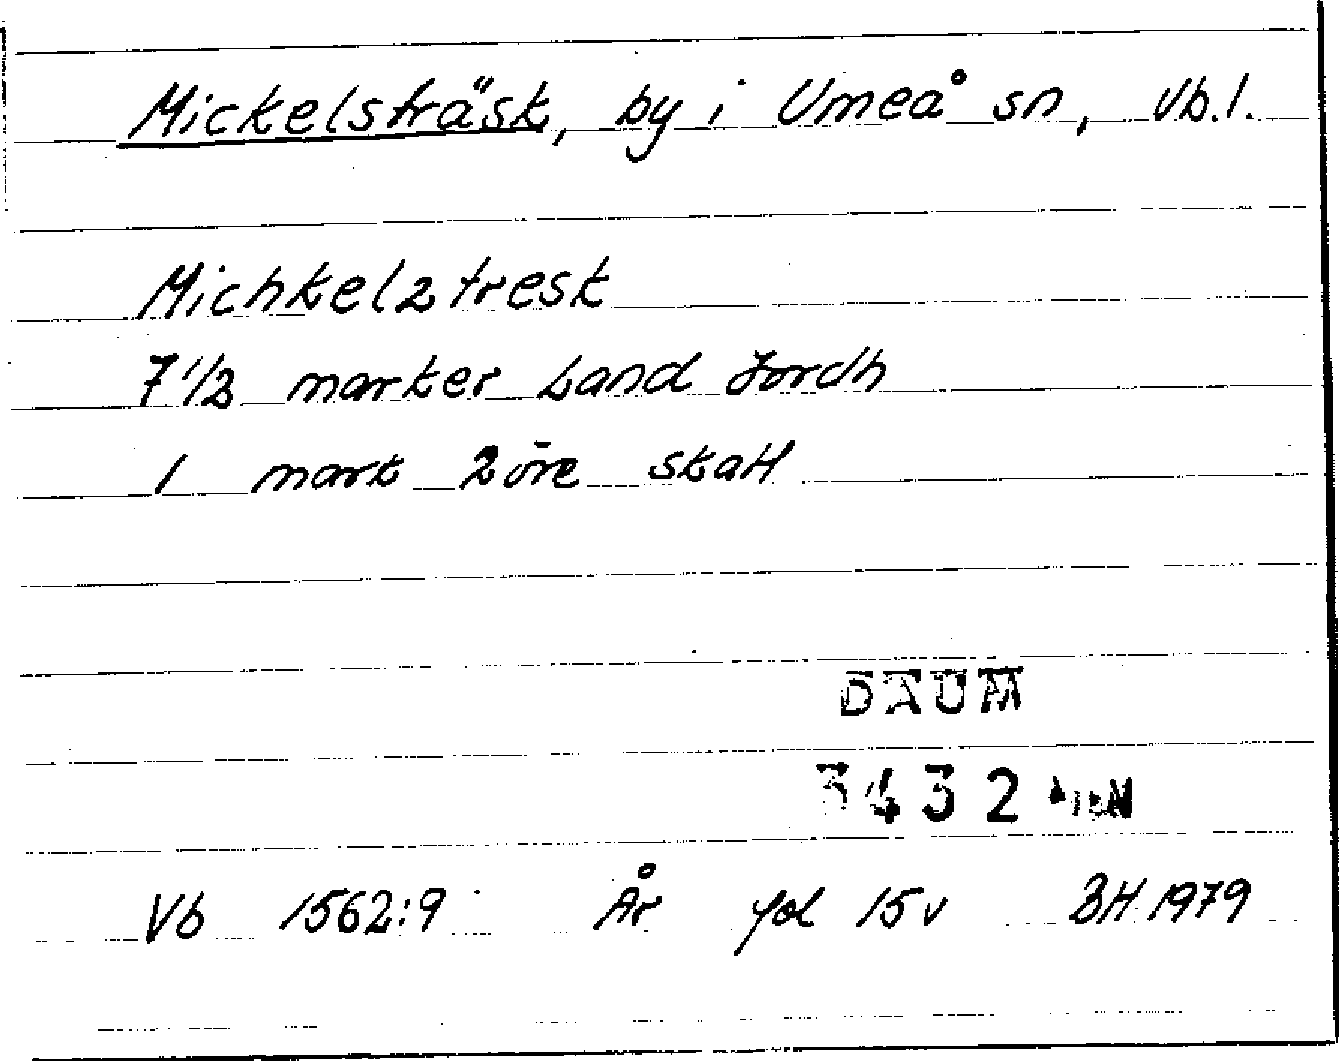 Mickelsträsk, by i Umeå sn, Vb.l.
Michkelz tresk
7 1/2 marker Land Jordh
1 mark 2 öre skatt
DAUM
3432
Vb 1562:9 År fol 15 v BH 1979